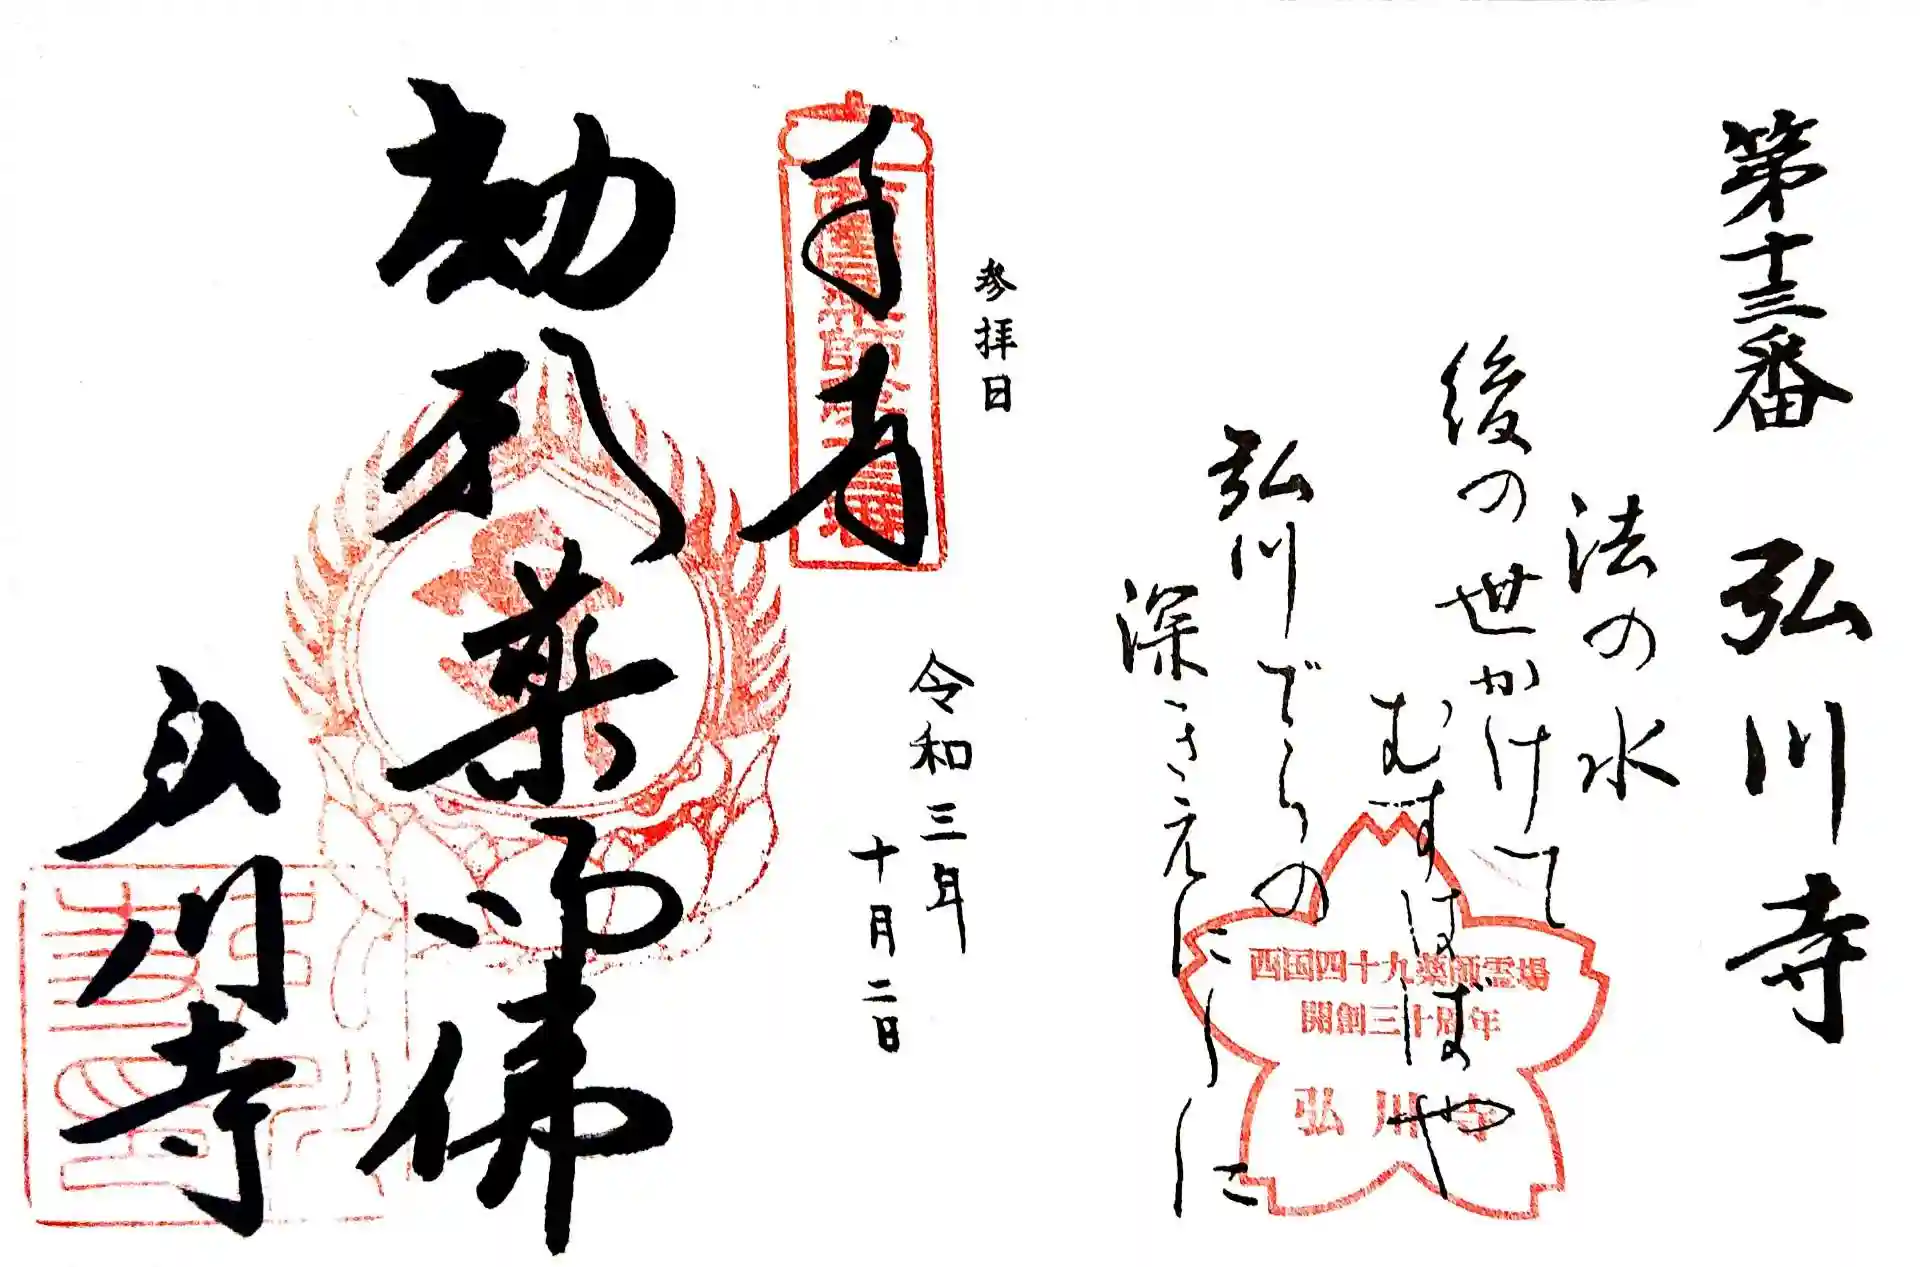 第十三番 弘川寺
法の水
後の世かけて
むすはばや
弘川でらの
深きえにしに
西国四十九薬師霊場
開創三十周年
弘川寺
参拝日
令和三年
十月二日
西国薬師第十三番
勅願薬師佛
弘川寺